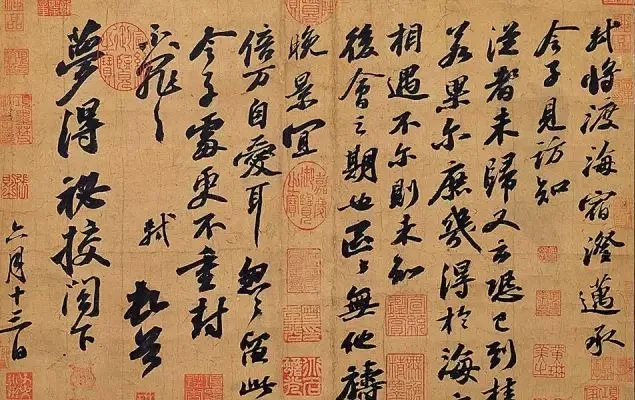 軾將渡海宿澄邁承
令子見訪知
從者未歸又云恐已到桂
若果尔庶幾得於海
相遇不尔則未知
後會之期也區々無他禱
晚景宜
倍万自愛耳忽々留此
令子處更不重封
不罪々 軾頓首
夢得祕校閣下
六月十三日